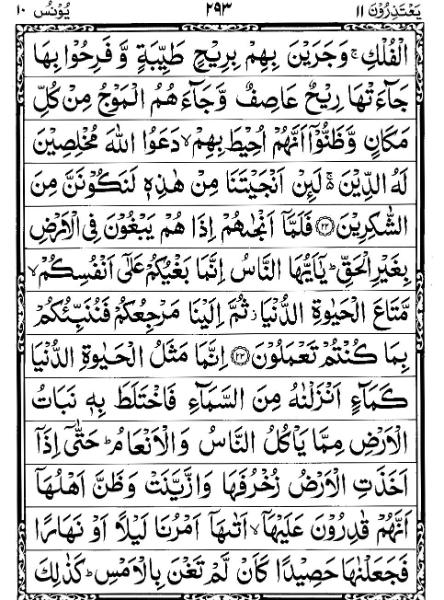 يَعْتَذِرُوْنَ ١١ ٢٩٣ يُوْنُس ١٠
الْفُلْكِ ۚ وَجَرَيْنَ بِهِمْ بِرِيْحٍ طَيِّبَةٍ وَّفَرِحُوْا بِهَا
جَآءَتْهَا رِيْحٌ عَاصِفٌ وَّجَآءَهُمُ الْمَوْجُ مِنْ كُلِّ
مَكَانٍ وَّظَنُّوْۤا اَنَّهُمْ اُحِيْطَ بِهِمْ ۙ دَعَوُا اللّٰهَ مُخْلِصِيْنَ
لَهُ الدِّيْنَ ۚ لَئِنْ اَنْجَيْتَنَا مِنْ هٰذِهٖ لَنَكُوْنَنَّ مِنَ
الشّٰكِرِيْنَ ﴿٢٢﴾ فَلَمَّاۤ اَنْجٰىهُمْ اِذَا هُمْ يَبْغُوْنَ فِى الْاَرْضِ
بِغَيْرِ الْحَقِّ ؕ يٰۤاَيُّهَا النَّاسُ اِنَّمَا بَغْيُكُمْ عَلٰۤى اَنْفُسِكُمْ ۙ
مَّتَاعَ الْحَيٰوةِ الدُّنْيَا ؗ ثُمَّ اِلَيْنَا مَرْجِعُكُمْ فَنُنَبِّئُكُمْ
بِمَا كُنْتُمْ تَعْمَلُوْنَ ﴿٢٣﴾ اِنَّمَا مَثَلُ الْحَيٰوةِ الدُّنْيَا
كَمَآءٍ اَنْزَلْنٰهُ مِنَ السَّمَآءِ فَاخْتَلَطَ بِهٖ نَبَاتُ
الْاَرْضِ مِمَّا يَاْكُلُ النَّاسُ وَالْاَنْعَامُ ؕ حَتّٰۤى اِذَاۤ
اَخَذَتِ الْاَرْضُ زُخْرُفَهَا وَازَّيَّنَتْ وَظَنَّ اَهْلُهَاۤ
اَنَّهُمْ قٰدِرُوْنَ عَلَيْهَاۤ ۙ اَتٰىهَاۤ اَمْرُنَا لَيْلًا اَوْ نَهَارًا
فَجَعَلْنٰهَا حَصِيْدًا كَاَنْ لَّمْ تَغْنَ بِالْاَمْسِ ؕ كَذٰلِكَ